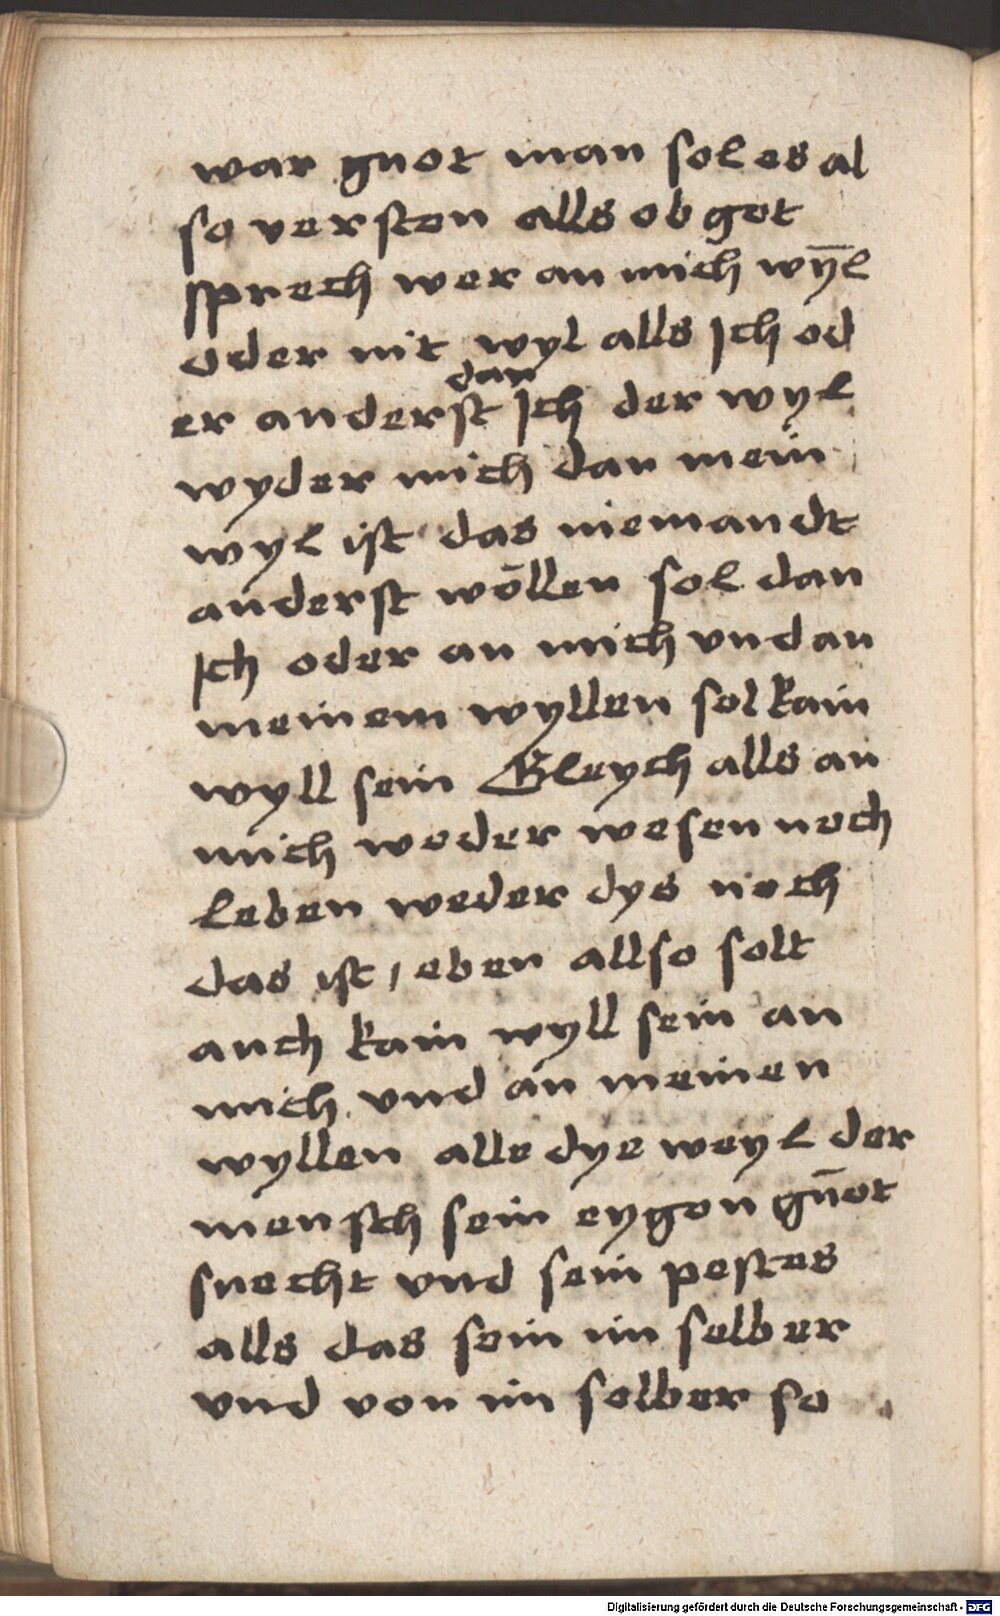 war guot man sol es al
so versten alls ob got
sprech wer an mich wȳl
oder nit wyl alls Ich od
dan
er anderst Ich der wyl
wyder mich dan mein
wyl ist das niemandt
anderst wōllen sol dan
Ich oder an mich vnd an
meinem wyllen sol kain
wyll sein Gleych alls an
mich weder wesen noch
leben weder dys noch
das ist / eben allso solt
auch kain wyll sein an
mich vnd an meinen
wyllen alle dye weyl der
mensch sein eygen gūot
suecht vnd sein pestes
alls das sein im selber
vnd von im selber so
Digitalisierung gefördert durch die Deutsche Forschungsgemeinschaft - DFG